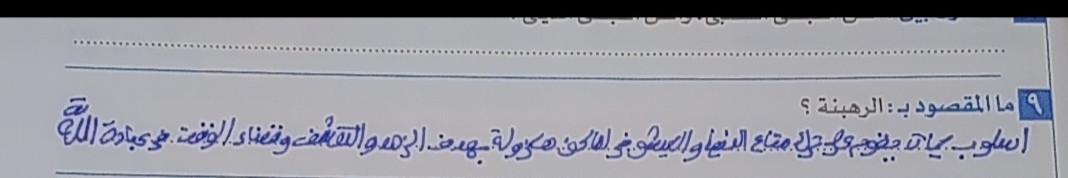 ٩ ما المقصود بـ : الرهبنة ؟
اسلوب حياة يقوم على ترك متاع الدنيا والعيش في اماكن معزولة بهدف الزهد والتقشف وقضاء الوقت في عبادة الله